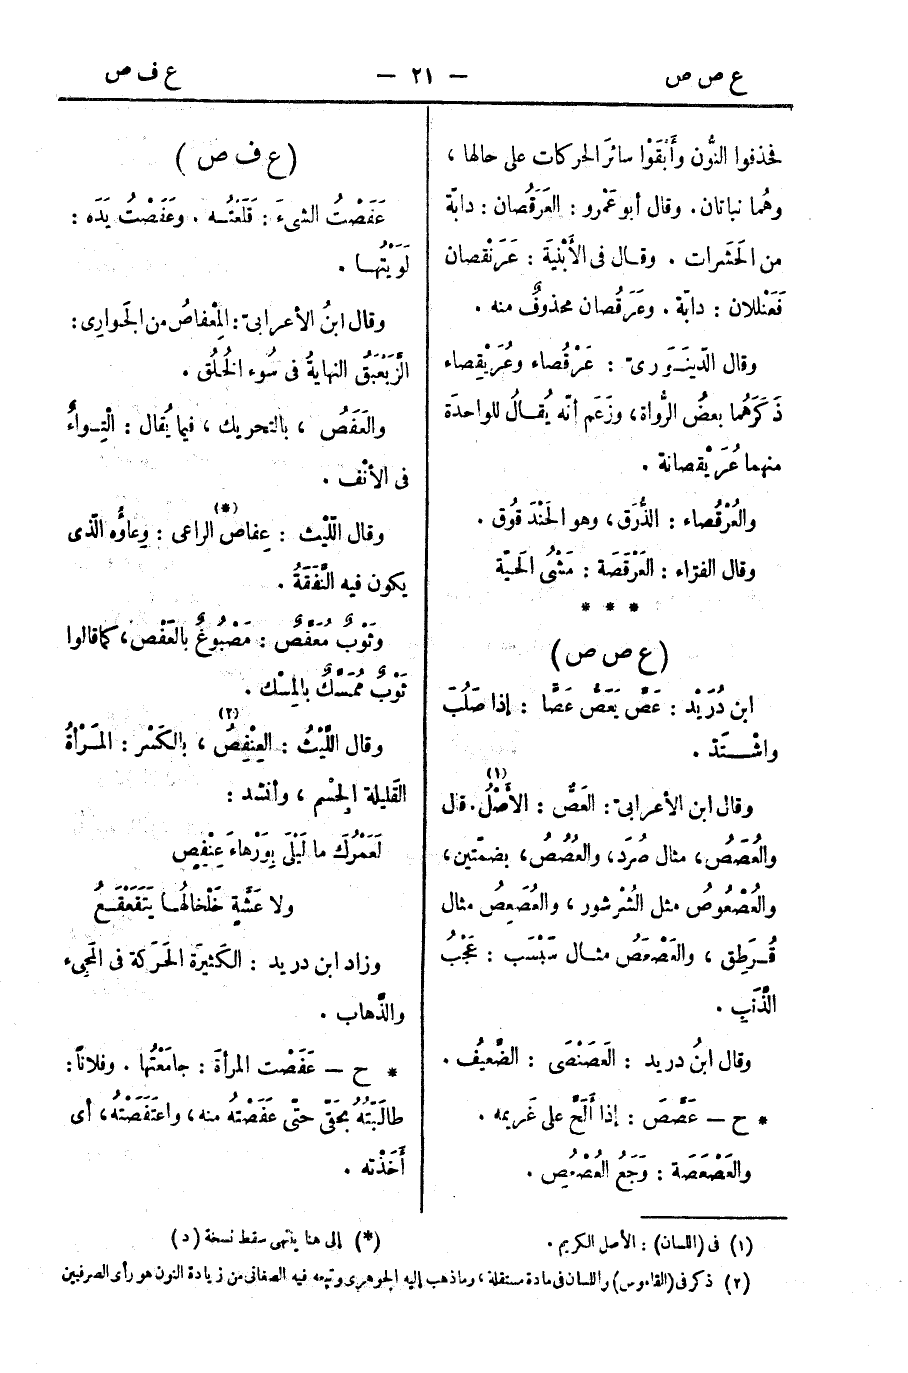 ع ص ص — ٢١ — ع ف ص
فحذفوا النُّون وأَبْقَوْا سائرَ الحركات على حالها ،
وهُما نباتان. وقال أبو عَمْرو : العَرَقُصان : دابّة
من الحَشَرات . وقال فى الأَبْنِية : عَرَنْقصان
فَعَنْلَلان : دابّة . وعَرَقُصان محذوفٌ منه .
وقال الدِّينَوَرىّ : عَرْقُصاء وعُرَيْقِصاء
ذَكَرَهُما بعضُ الرُّواة، وزَعَم أنّه يُقالُ للواحدة
منهما عُرَيْقِصانة .
والعُرْقُصاء : الذُّرَق ، وهو الحَنْدَقُوق .
وقال الفرّاء : العَرْقَصة : مَشْىُ الحيّة
* * *
(ع ص ص)
ابن دُرَيْد : عَصَّ يَعَصُّ عَصًّا : إذا صَلُبَ
واشْتَدّ .
وقال ابن الأعرابىّ : العَصُّ : الأَصْلُ(١). قال
والعُصَصُ، مثال صُرَد، والعُصُصُ، بضمّتين،
والعُصْعُوصُ مثل الثُّرْشُور ، والعُصَعِصُ مثال
قُرَطِق ، والعَصْعَصُ مثال سَبْسَب : عَجْبُ
الذَّنَبِ .
وقال ابنُ دريد : العَصَنْصَى : الضَّعيُف .
* ح — عَصَّصَ : إذا أَلَحَّ على غَريمه .
والعَصْعَصة : وَجَعُ العُصْعُصِ .
(ع ف ص)
عَفَصْتُ الشىءَ : قَلَعْتُه . وعَفَصْتُ يَدَه :
لَوَيْتُها .
وقال ابنُ الأعرابىّ : المِعْفاصُ من الجَوارِى :
الزَّبَعْبَقُ النهايةُ فى سُوء الخُلُق .
والعَفَصُ ، بالتحريك ، فيما يُقال : الْتِواءٌ
فى الأَنْف .
وقال اللَّيْث : عِفاص(*) الراعى : وِعاؤُه الّذى
يكون فيه النَّفَقَةُ .
وثَوْبٌ مُعَفَّصٌ : مَصْبُوغٌ بالعَفْص، كما قالوا
ثَوْبٌ مُمَسَّكٌ بالمِسْك .
وقال اللَّيْثُ : العِنْفِصُ(٢) ، بالكَسْر : المَرْأةُ
القَليلة الجِسْم ، وأنشد :
لَعَمْرُكَ ما لَيْلَى بِوَرْهاءَ عِنْفِصٍ
ولا عَشَّةٍ خَلْخالُها يَتَقَعْقَعُ
وزاد ابن دريد : الكَثيَرة الحَرَكة فى المَجىِء
والذَّهاب .
* ح — عَفَصْت المرأةَ : جامَعْتُها . وفلانًا :
طالَبْتُه بحَقّى حتّى عَفَصْتُه منه ، واعْتَفَصْتُه ، أى
أَخَذْته .
(١) فى (اللسان) : الأصل الكريم .
(*) إلى هنا ينتهى سقط نسخة (د)
(٢) ذكر فى (القاموس) واللسان فى مادة مستقلة ، وما ذهب إليه الجوهرى وتبعه فيه الصغانى من زيادة النون هو رأى الصرفيين